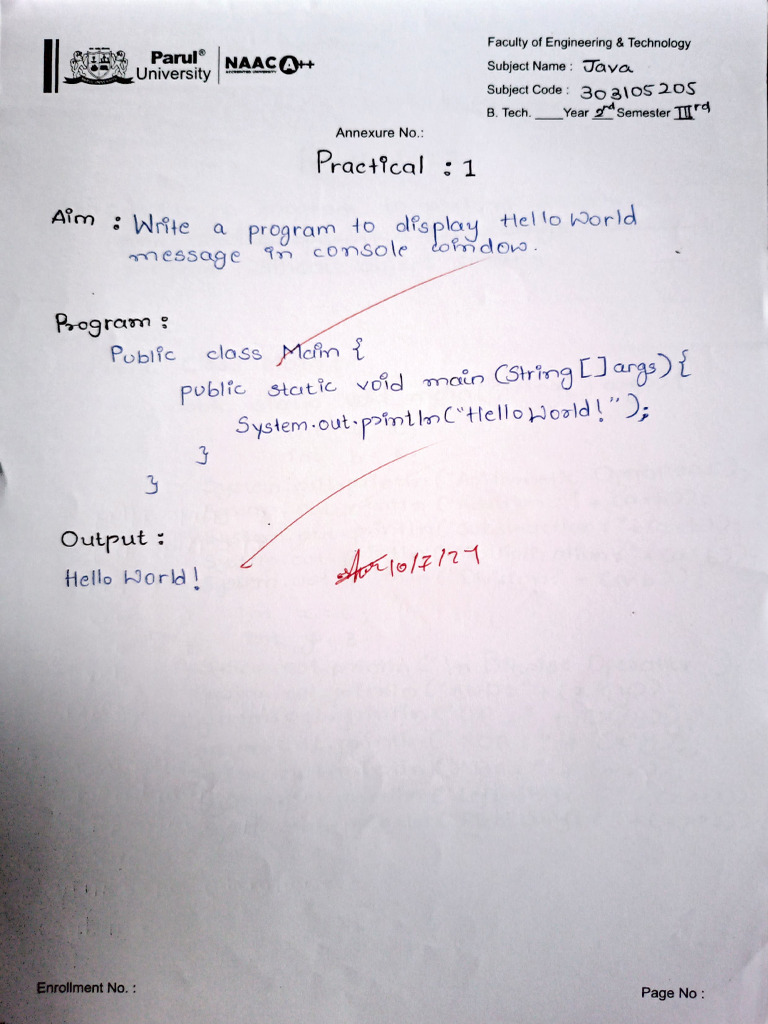 Parul®
University
NAAC A++
ACCREDITED UNIVERSITY
Faculty of Engineering & Technology
Subject Name : Java
Subject Code : 303105205
B. Tech. ____Year 2nd Semester IIIrd
Annexure No.:
Practical : 1
Aim : Write a program to display Hello World
message in console window.
Program :
Public class Main {
public static void main (String [] args) {
System.out.println("Hello World!");
}
}
Output :
Hello World!
10/7/24
Enrollment No. :
Page No :